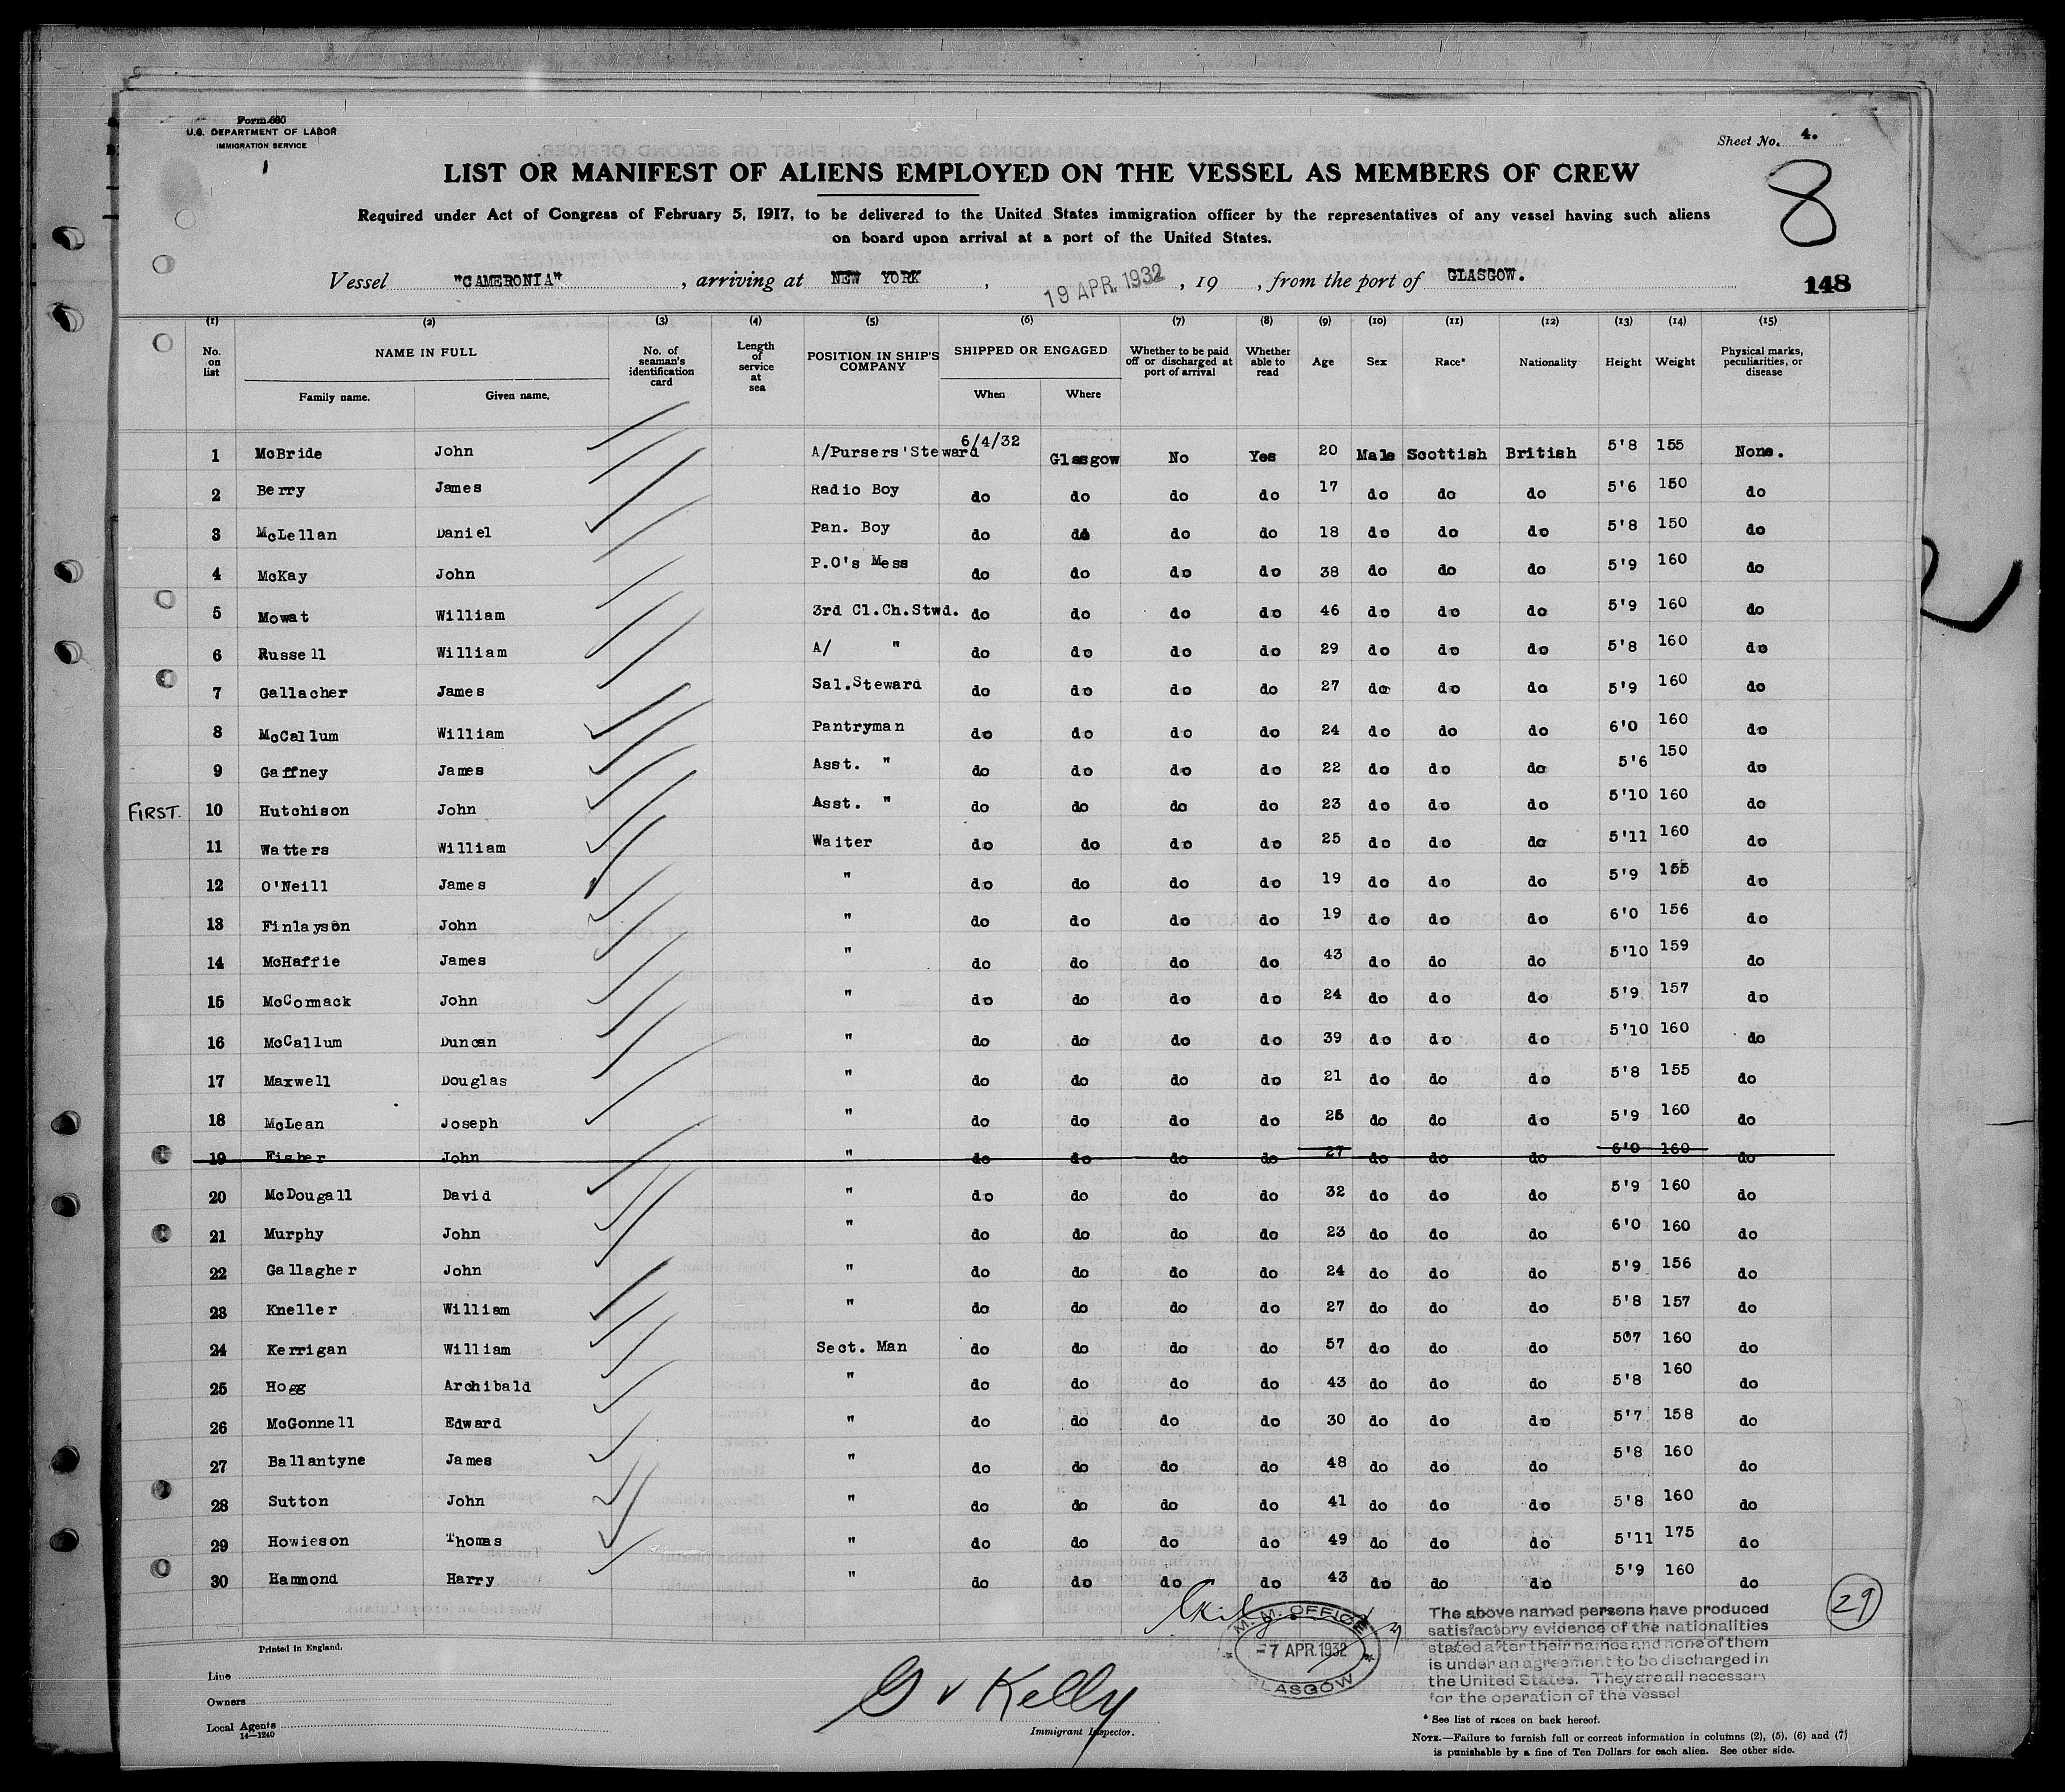 Form 680
U.S. DEPARTMENT OF LABOR
IMMIGRATION SERVICE
Sheet No. 4.
8
LIST OR MANIFEST OF ALIENS EMPLOYED ON THE VESSEL AS MEMBERS OF CREW
Required under Act of Congress of February 5, 1917, to be delivered to the United States immigration officer by the representatives of any vessel having such aliens
on board upon arrival at a port of the United States.
Vessel "CAMERONIA" , arriving at NEW YORK , 19 APR. 1932 , 19 , from the port of GLASGOW. 148
(1) (2) (3) (4) (5) (6) (7) (8) (9) (10) (11) (12) (13) (14) (15)
No. on list NAME IN FULL Family name. Given name. No. of seaman's identification card Length of service at sea POSITION IN SHIP'S COMPANY SHIPPED OR ENGAGED When Where Whether to be paid off or discharged at port of arrival Whether able to read Age Sex Race* Nationality Height Weight Physical marks, peculiarities, or disease
1 McBride John A/Pursers'Steward 6/4/32 Glasgow No Yes 20 Male Scottish British 5'8 155 None.
2 Berry James Radio Boy do do do do 17 do do do 5'6 150 do
3 McLellan Daniel Pan. Boy do do do do 18 do do do 5'8 150 do
4 McKay John P.O's Mess do do do do 38 do do do 5'9 160 do
5 Mowat William 3rd Cl.Ch.Stwd. do do do do 46 do do do 5'9 160 do
6 Russell William A/ " do do do do 29 do do do 5'8 160 do
7 Gallacher James Sal.Steward do do do do 27 do do do 5'9 160 do
8 McCallum William Pantryman do do do do 24 do do do 6'0 160 do
9 Gaffney James Asst. " do do do do 22 do do do 5'6 150 do
FIRST. 10 Hutchison John Asst. " do do do do 23 do do do 5'10 160 do
11 Watters William Waiter do do do do 25 do do do 5'11 160 do
12 O'Neill James " do do do do 19 do do do 5'9 155 do
13 Finlayson John " do do do do 19 do do do 6'0 156 do
14 McHaffie James " do do do do 43 do do do 5'10 159 do
15 McCormack John " do do do do 24 do do do 5'9 157 do
16 McCallum Duncan " do do do do 39 do do do 5'10 160 do
17 Maxwell Douglas " do do do do 21 do do do 5'8 155 do
18 McLean Joseph " do do do do 26 do do do 5'9 160 do
19 Fisher John " do do do do 27 do do do 6'0 160 do
20 McDougall David " do do do do 32 do do do 5'9 160 do
21 Murphy John " do do do do 23 do do do 6'0 160 do
22 Gallagher John " do do do do 24 do do do 5'9 156 do
23 Kneller William " do do do do 27 do do do 5'8 157 do
24 Kerrigan William Sect. Man do do do do 57 do do do 507 160 do
25 Hogg Archibald " do do do do 43 do do do 5'8 160 do
26 McGonnell Edward " do do do do 30 do do do 5'7 158 do
27 Ballantyne James " do do do do 48 do do do 5'8 160 do
28 Sutton John " do do do do 41 do do do 5'8 160 do
29 Howieson Thomas " do do do do 49 do do do 5'11 175 do
30 Hammond Harry " do do do do 43 do do do 5'9 160 do
29
M.M. OFFICE
-7 APR.1932
GLASGOW
The above named persons have produced
satisfactory evidence of the nationalities
stated after their names and none of them
is under an agreement to be discharged in
the United States. They are all necessary
for the operation of the vessel
Printed in England.
Line
Owners
Local Agents
14—1240
G v Kelly
Immigrant Inspector.
* See list of races on back hereof.
NOTE.—Failure to furnish full or correct information in columns (2), (5), (6) and (7)
is punishable by a fine of Ten Dollars for each alien. See other side.